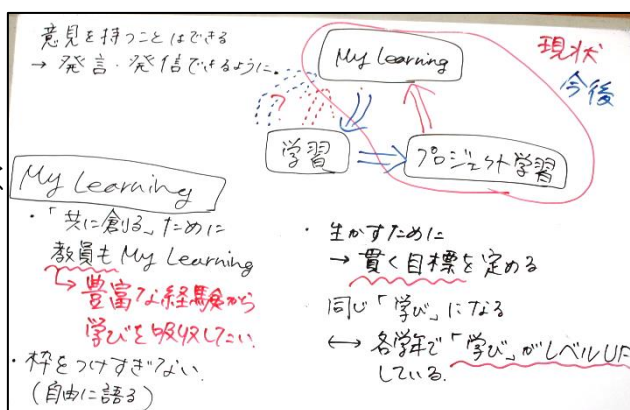 意見を持つことはできる
→ 発言・発信できるように。
My Learning
学習
プロジェクト学習
現状
今後
My Learning
・「共に創る」ために
教員も My Learning
↳ 豊富な経験から
学びを吸収したい
・枠をつけすぎない
(自由に語る)
・生かすために
→ 貫く目標を定める
同じ「学び」になる
↔ 各学年で「学び」がレベルUP
している.